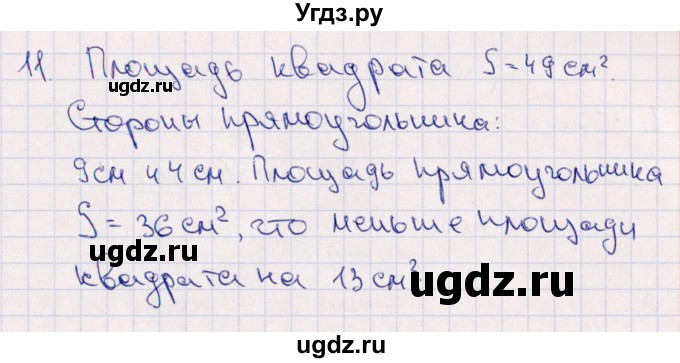 Угдз.ру
11. Площадь квадрата S = 49 см².
ugdz.ru
ugdz.ru
Стороны прямоугольника:
9 см и 4 см. Площадь прямоугольника
S = 36 см², что меньше площади
ugdz.ru
квадрата на 13 см²
ugdz.ru
ugdz.ru